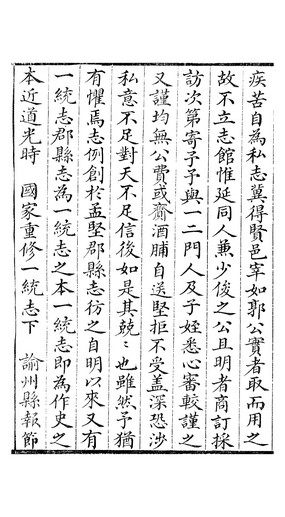 疾苦自為私志冀得賢邑宰如郭公實者取而用之
故不立志館惟延同人兼少俊之公且明者商訂採
訪次第寄予予與一二門人及子姪悉心審較謹之
又謹均無公費或齎酒脯自送堅拒不受蓋深恐涉
私意不足對天不足信後如是其兢兢也雖然予猶
有懼焉志例創於孟堅郡縣志彷之自明以來又有
一統志郡縣志為一統志之本一統志即為作史之
本近道光時　國家重修一統志下　諭州縣報節